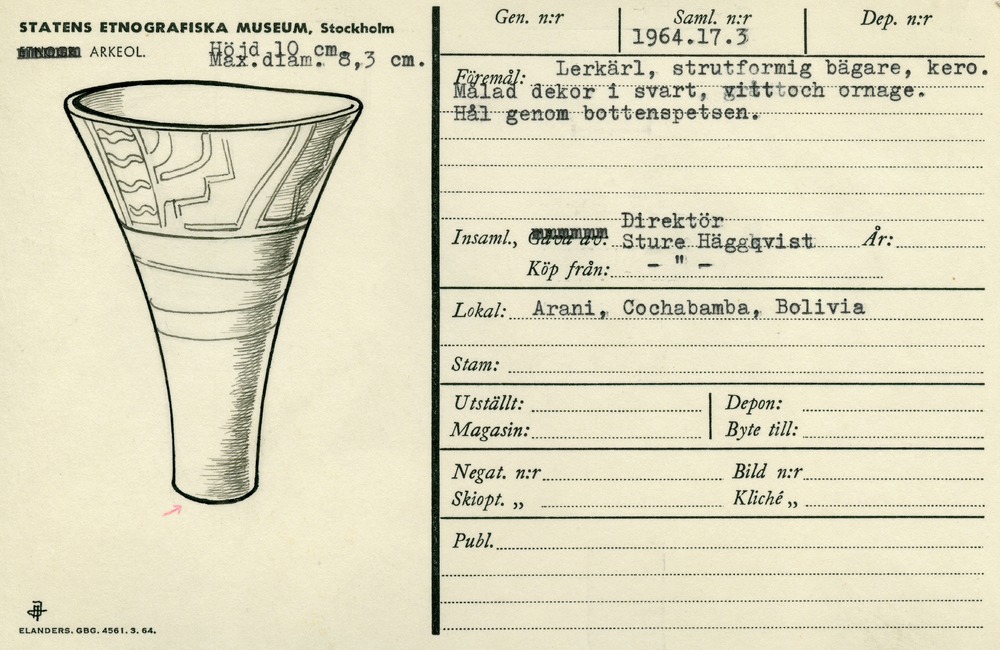 STATENS ETNOGRAFISKA MUSEUM, Stockholm
ARKEOL.
Höjd 10 cm.
Max.diam. 8,3 cm.
ELANDERS. GBG. 4561. 3. 64.
Gen. n:r
Saml. n:r
1964.17.3
Dep. n:r
Föremål: Lerkärl, strutformig bägare, kero.
Målad dekor i svart, vitt och ornage.
Hål genom bottenspetsen.
Direktör
Insaml., Gåva av: Sture Häggqvist År:
Köp från: - " -
Lokal: Arani, Cochabamba, Bolivia
Stam:
Utställt: Depon:
Magasin: Byte till:
Negat. n:r Bild n:r
Skiopt. „ Kliché „
Publ.